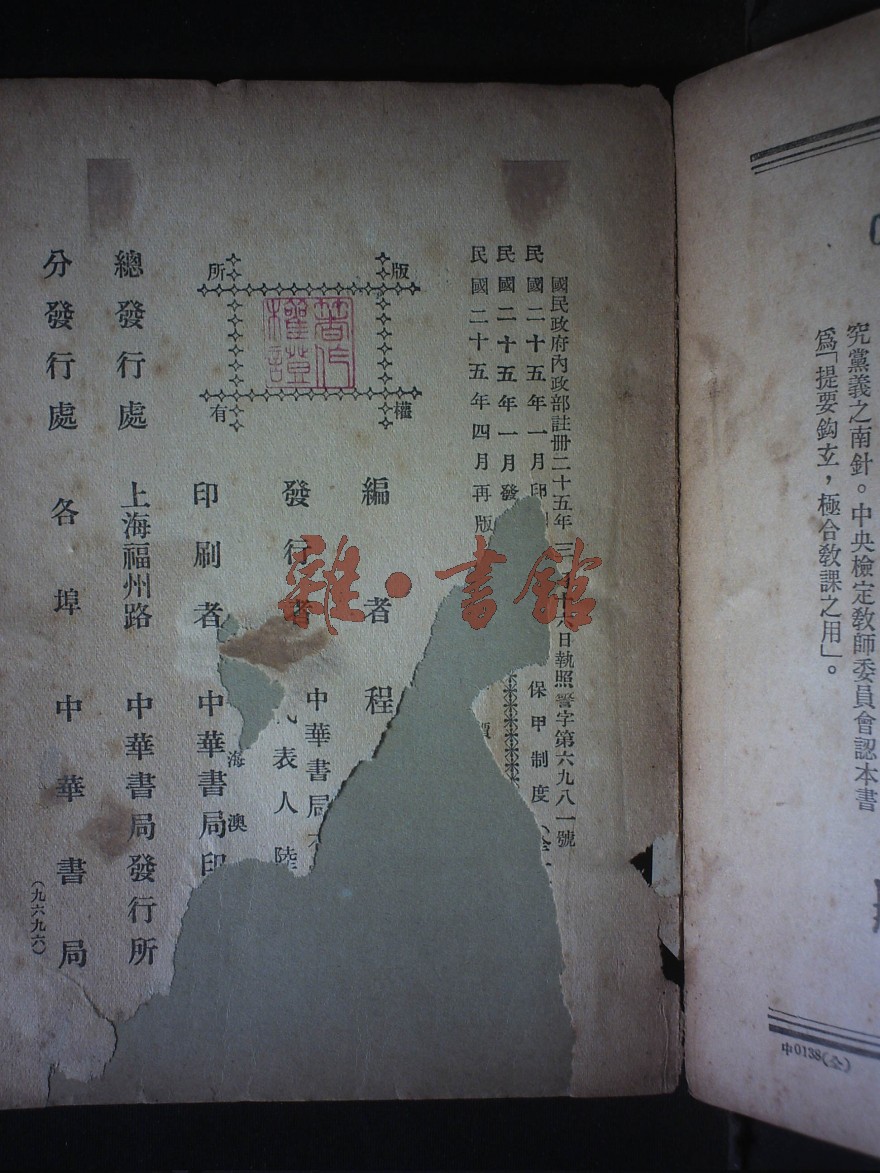 究黨義之南針。中央檢定教師委員會認本書
爲「提要鈎玄，極合教課之用」。
中0138(全)
國民政府內政部註冊二十五年三月十六日執照警字第六九八一號
民國二十五年一月印
民國二十五年一月發
民國二十五年四月再版
保甲制度
版權所有
著作權證
編者 程
發行者 中華書局
代表人 陸
印刷者 中華書局印
海 澳
總發行處 上海福州路 中華書局發行所
分發行處 各埠 中華書局
(九六九六)
雜·書館